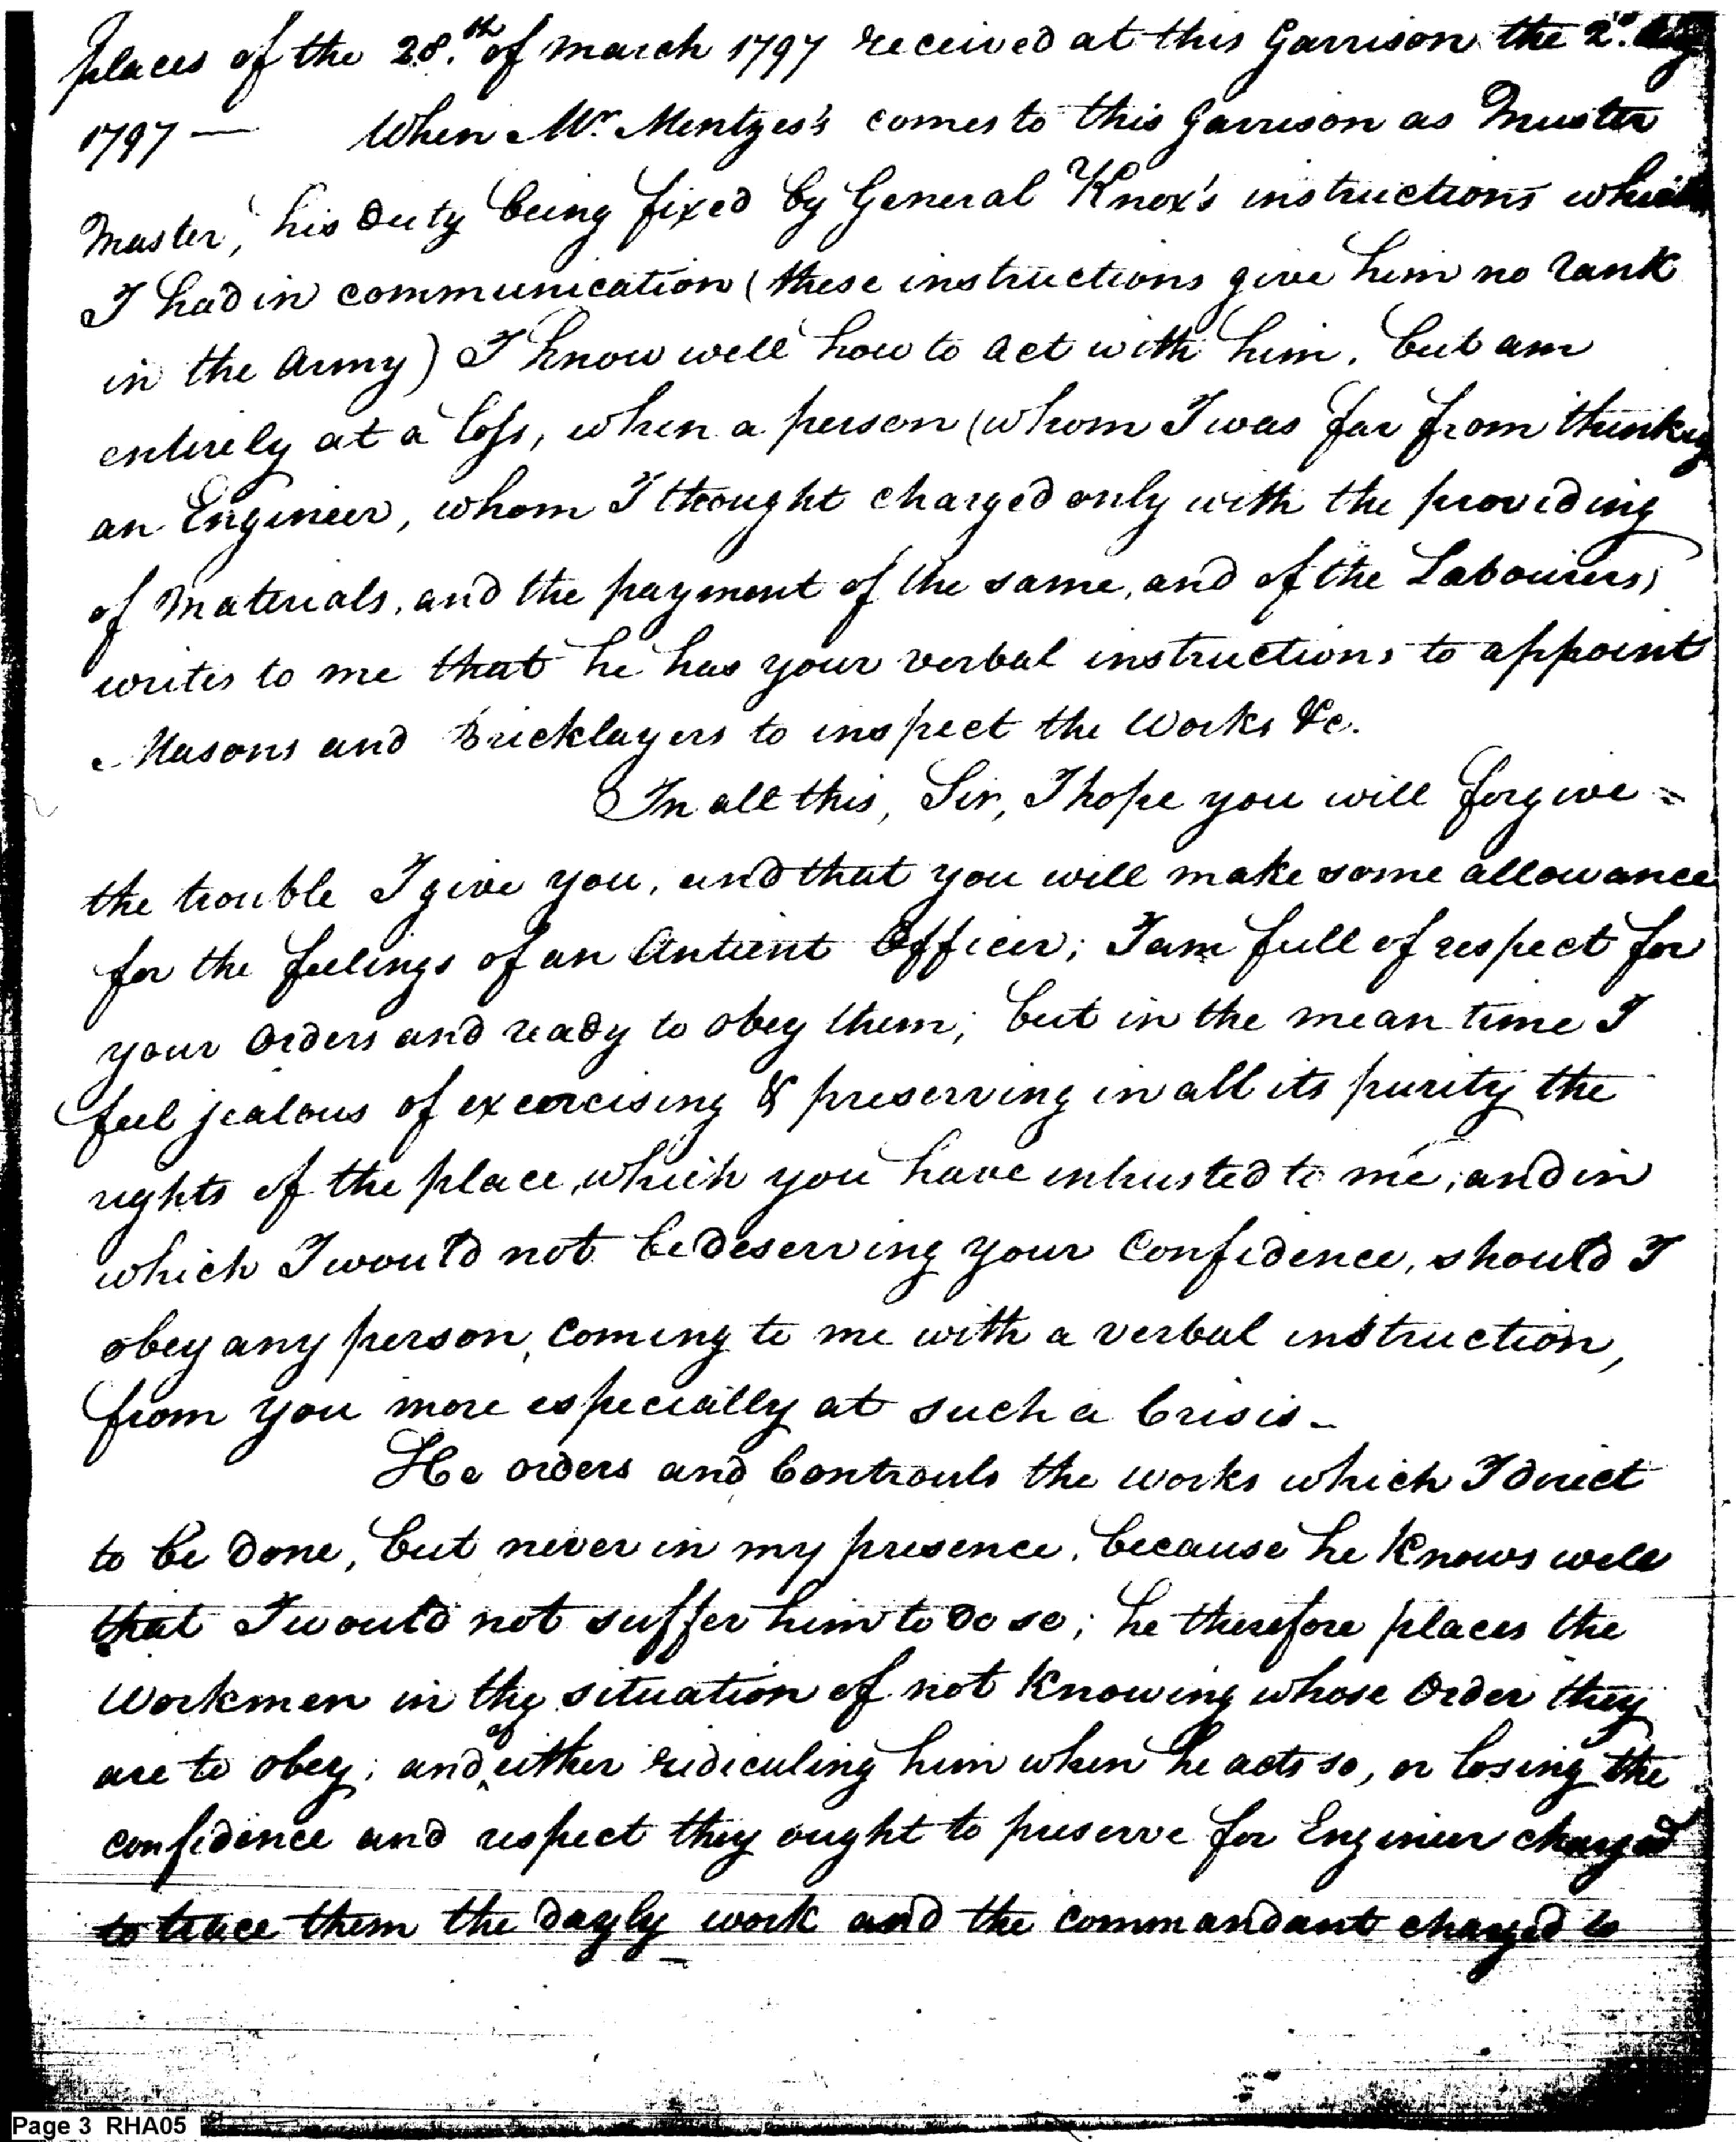 places of the 28.th of march 1797 received at this Garrison the 2.d
1797 — When Mr. Mentzes's comes to this Garrison as Muster
Master, his Duty being fixed by General Knox's instructions which
I had in communication (these instructions give him no rank
in the Army) I know well how to act with him, but am
entirely at a loss, when a person (whom I was far from thinking
an Engineer, whom I thought charged only with the providing
of Materials, and the payment of the same, and of the Labourers)
writes to me that he has your verbal instructions to appoint
Masons and Bricklayers to inspect the Works &c.
In all this, Sir, I hope you will forgive =
the trouble I give you, and that you will make some allowance
for the feelings of an Antient Officer; I am full of respect for
your Orders and ready to obey them; but in the mean time I
feel jealous of exercising & preserving in all its purity the
rights of the place, which you have intrusted to me; and in
which I would not be deserving your Confidence, should I
obey any person, coming to me with a verbal instruction,
from you more especially at such a Crisis –
He orders and Controuls the works which I direct
to be done, but never in my presence, because he knows well
that I would not suffer him to do so; he therefore places the
Workmen in the situation of not knowing whose Order they
are to obey; and of either ridiculing him when he acts so, or losing the
confidence and respect they ought to preserve for Engineer charged
to trace them the dayly work and the commandant charged to
Page 3 RHA05